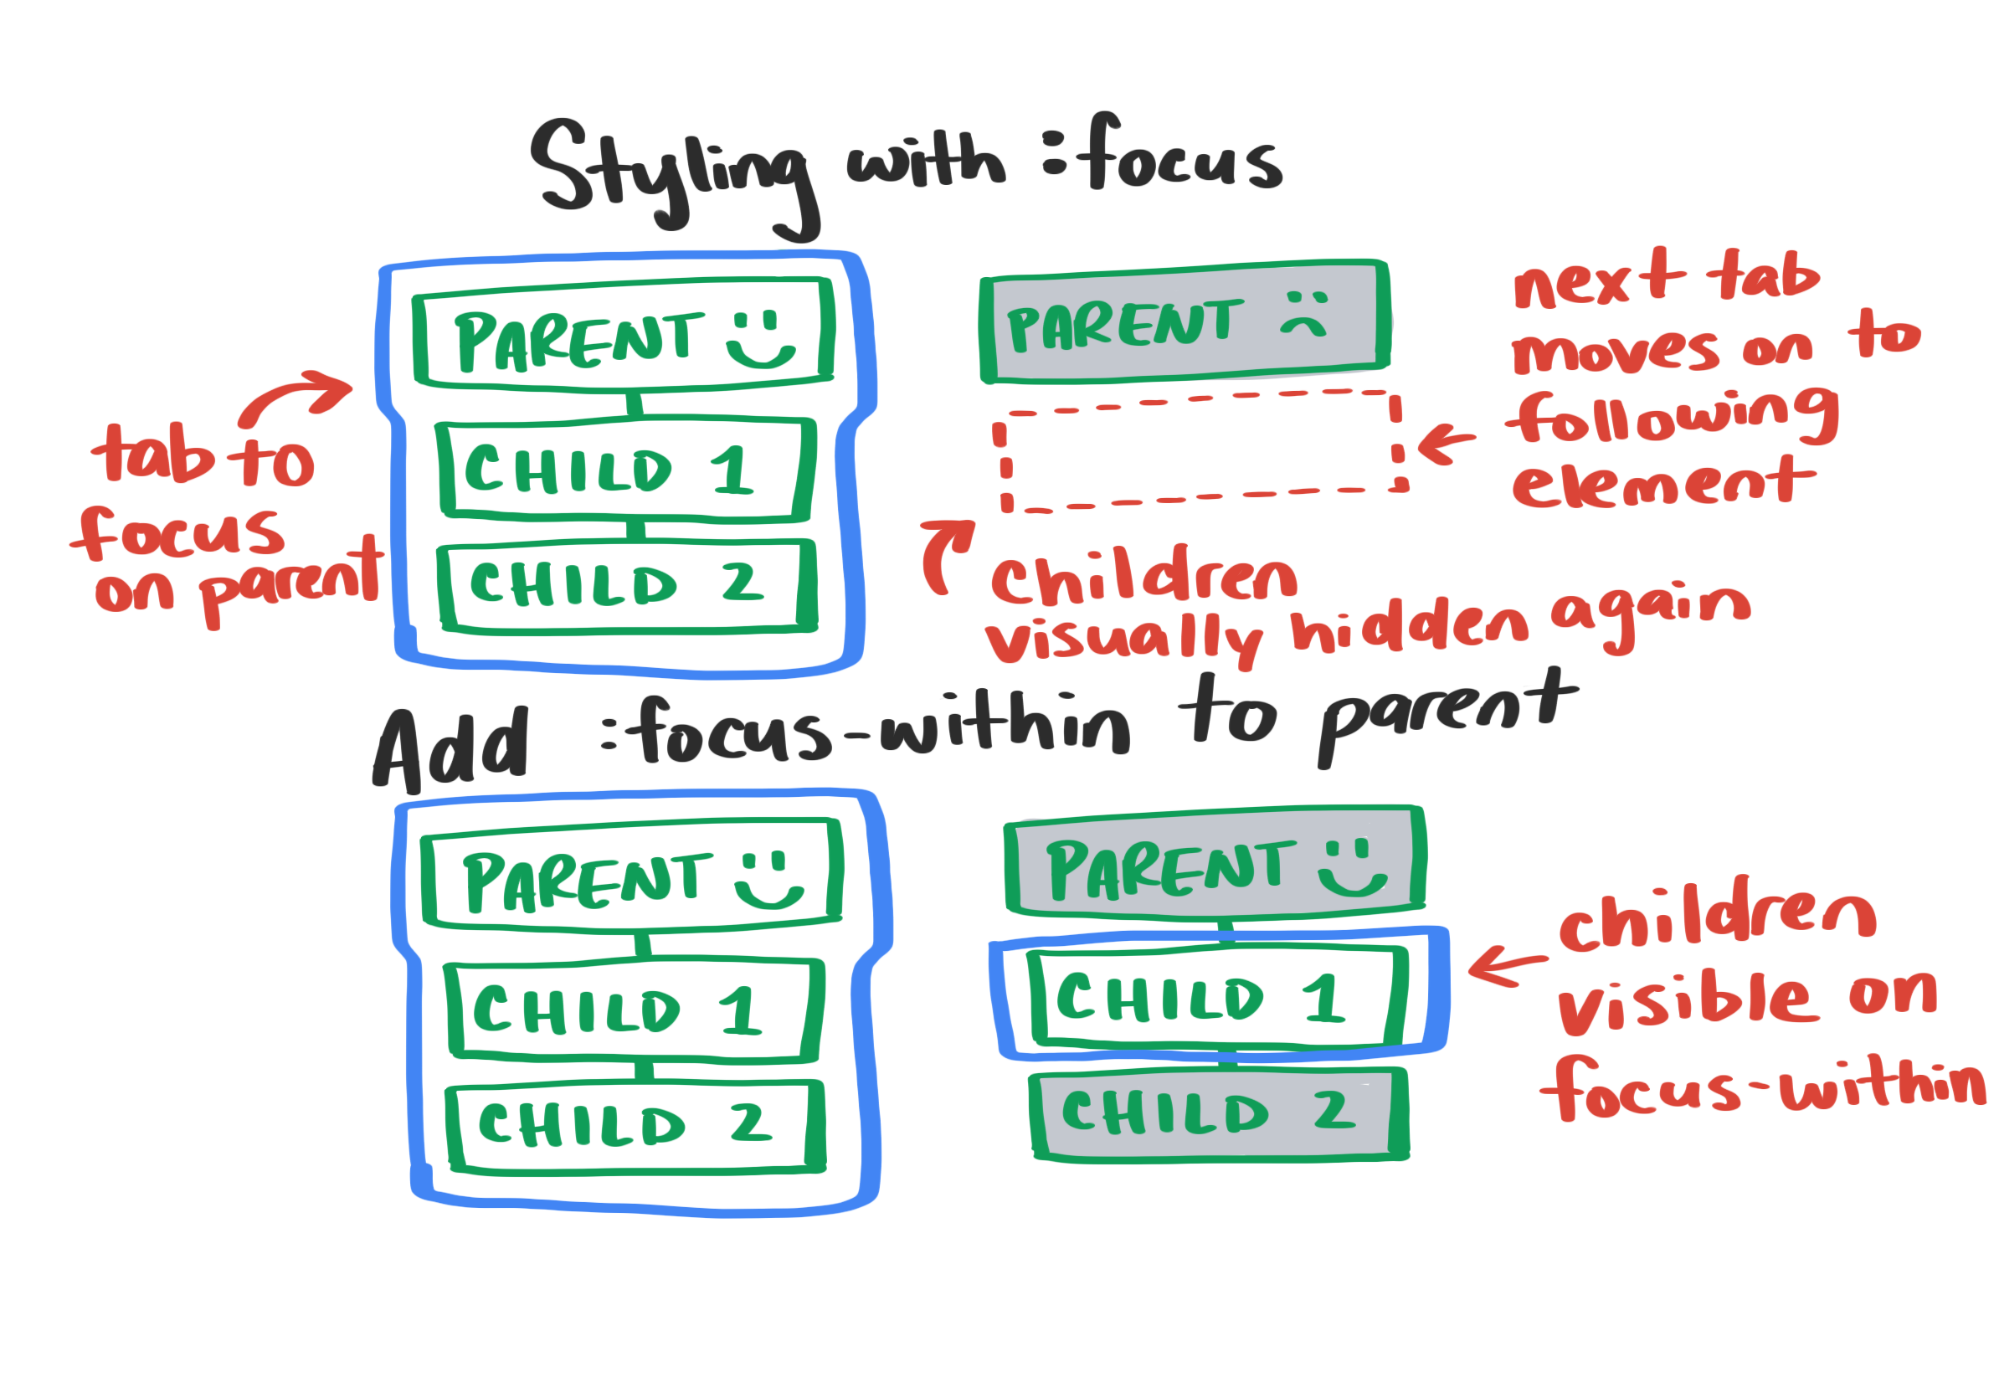 Styling with :focus
PARENT
CHILD 1
CHILD 2
tab to
focus
on parent
PARENT
next tab
moves on to
following
element
children
visually hidden again
Add :focus-within to parent
PARENT
CHILD 1
CHILD 2
PARENT
CHILD 1
CHILD 2
children
visible on
focus-within